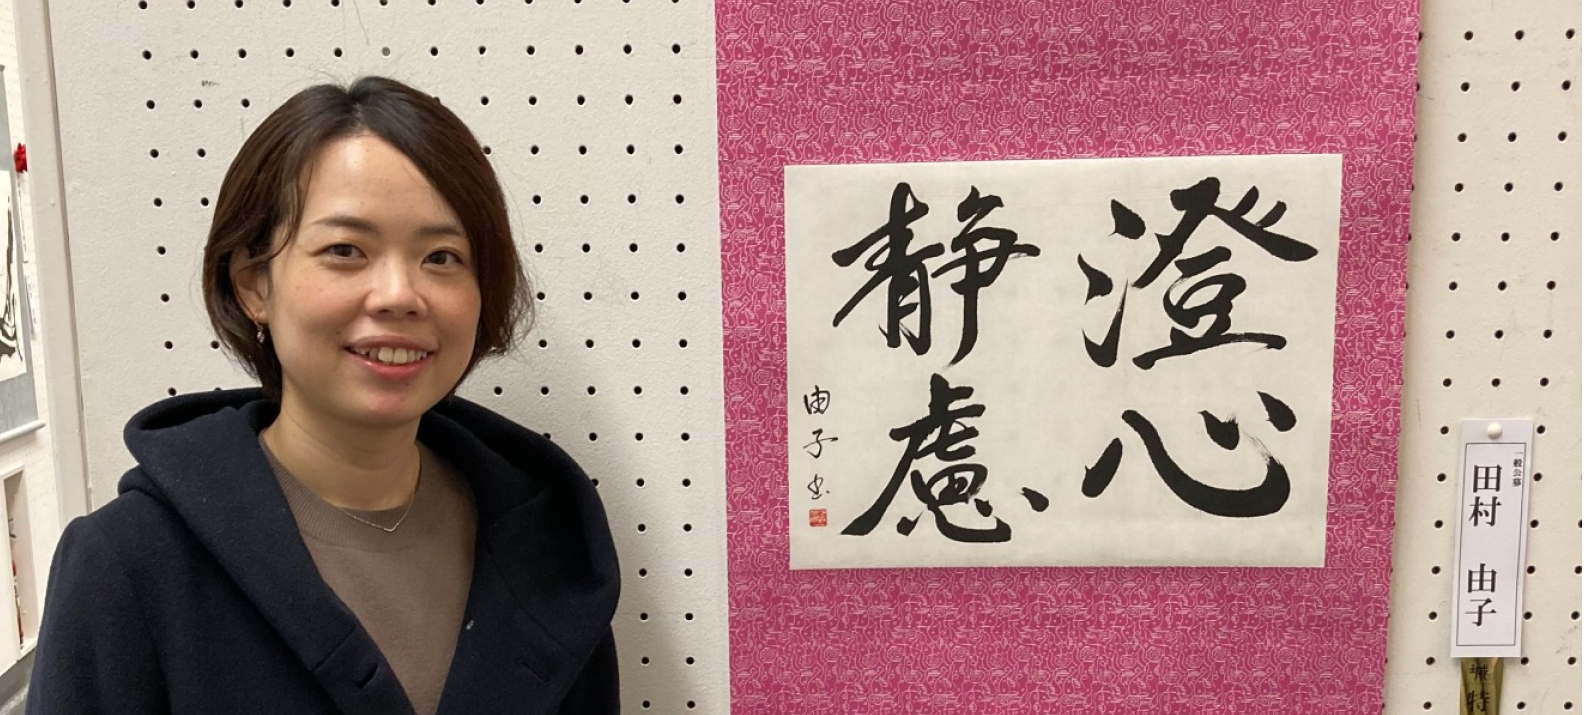 澄心
静慮
由子書
一般公募
田村 由子
特